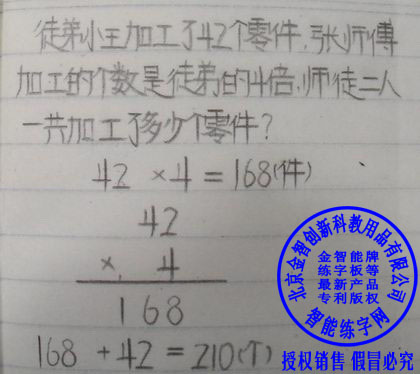 徒弟小王加工了42个零件,张师傅
加工的个数是徒弟的4倍.师徒二人
一共加工了多少个零件?
42 ×4=168(件)
42
×. 4
168
168 +42=210(个)
北京金智创新科教用品有限公司
金智能牌
练字板等
最新产品
专利版权
智能练字网
授权销售 假冒必究